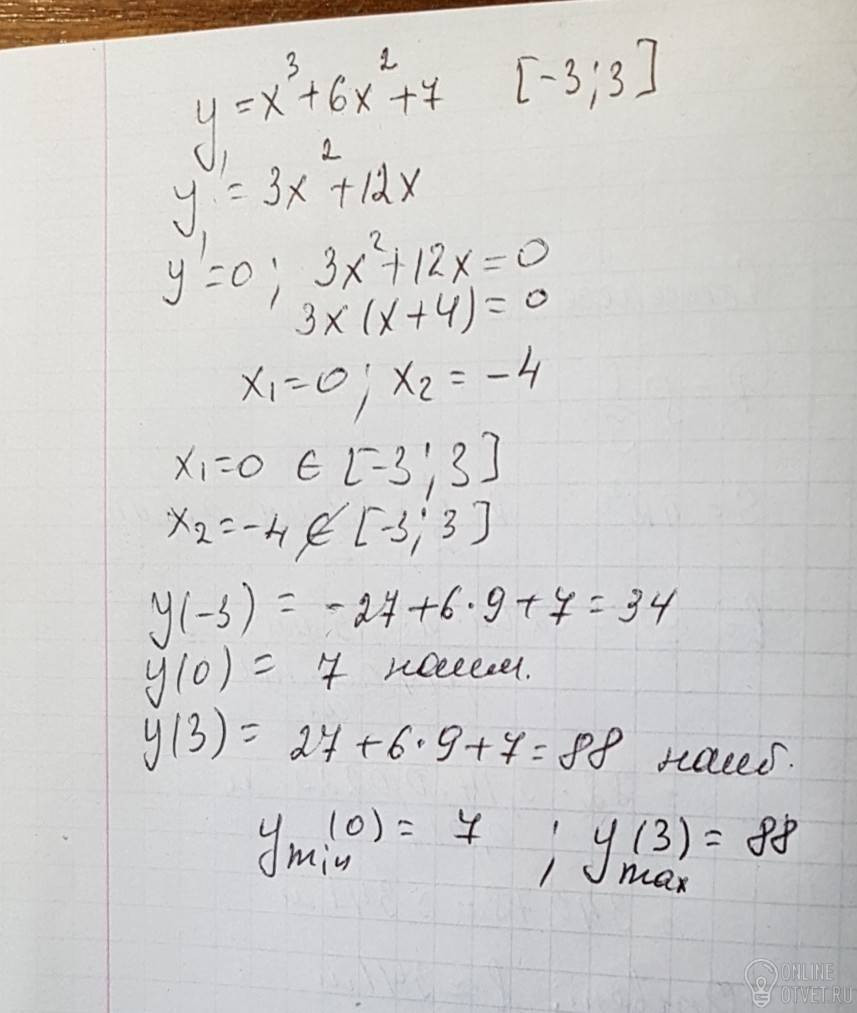 y = x³ + 6x² + 7 [-3; 3]
y' = 3x² + 12x
y' = 0; 3x² + 12x = 0
3x(x + 4) = 0
x₁ = 0; x₂ = -4
x₁ = 0 ∈ [-3; 3]
x₂ = -4 ∉ [-3; 3]
y(-3) = -27 + 6·9 + 7 = 34
y(0) = 7 наим.
y(3) = 27 + 6·9 + 7 = 88 наиб.
y min (0) = 7 ; y max (3) = 88
ONLINE
OTVET.RU